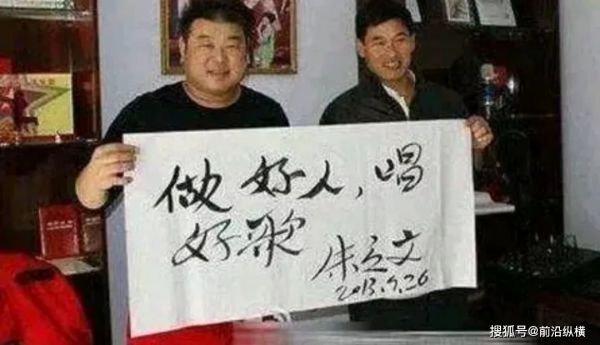 做好人，唱
好歌
朱之文
2013.9.26
搜狐号@前沿纵横